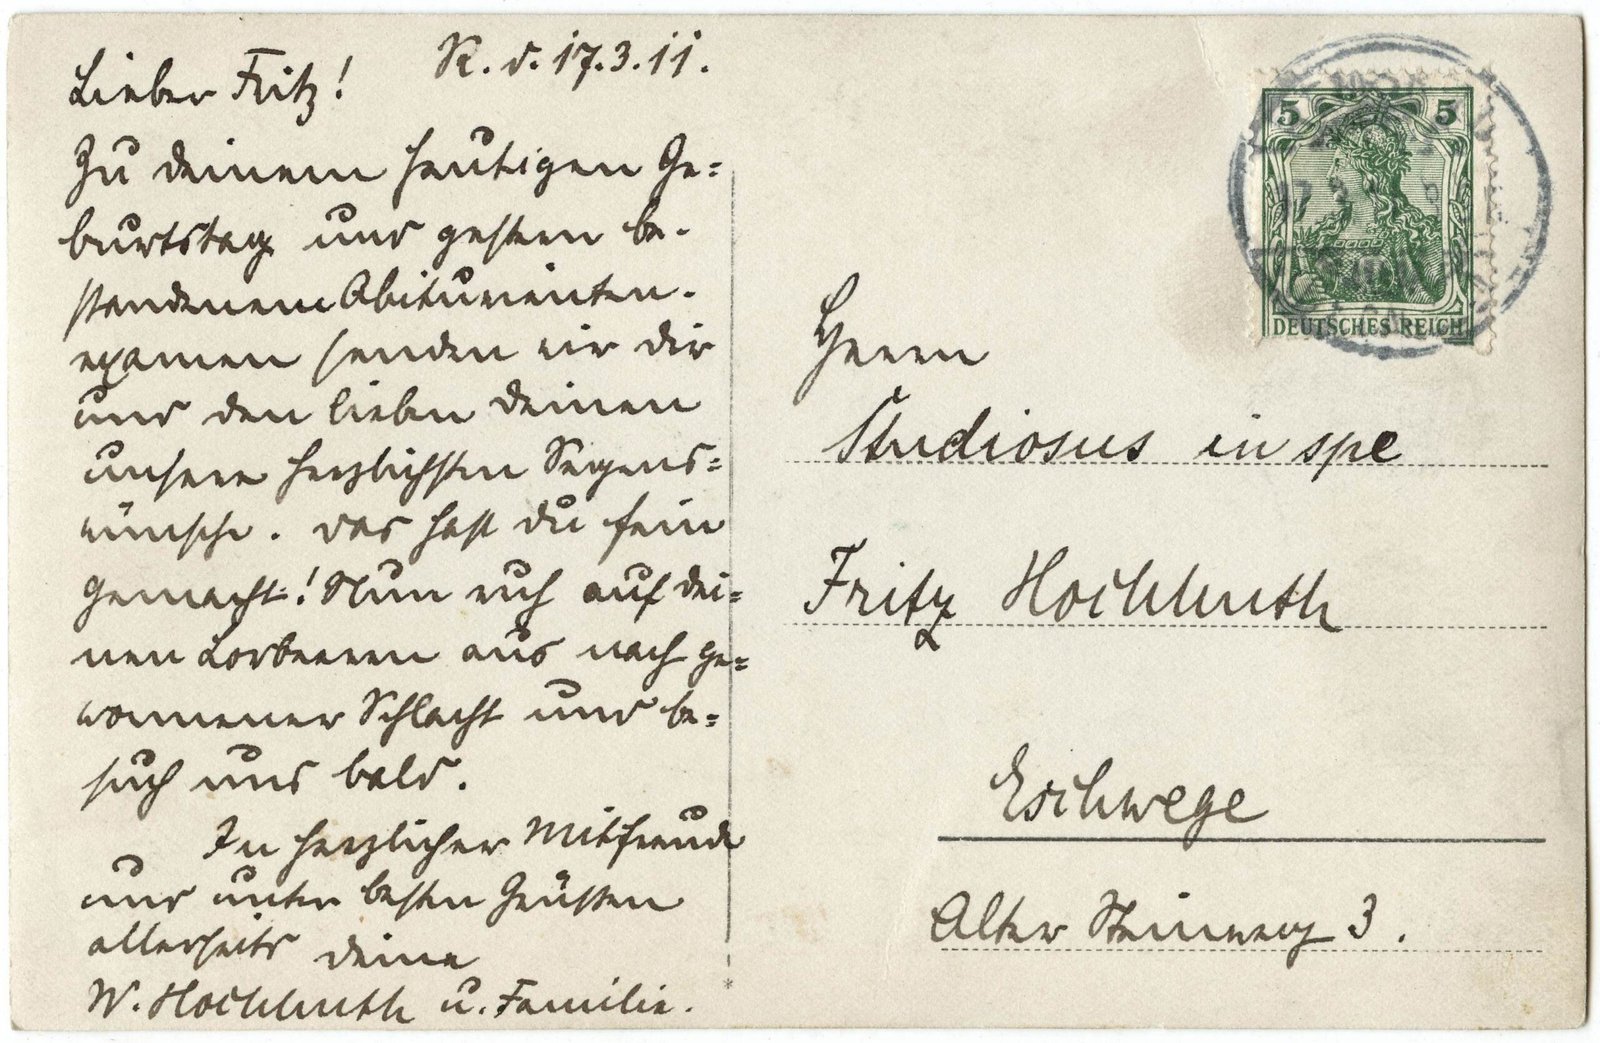 Lieber Fritz! K. d. 17.3.11.
Zu deinem heutigen Ge=
burtstag und gestern be-
standenem Abiturienten-
examen senden wir dir
und den lieben deinen
unsere herzlichsten Segens=
wünsche. Das hast du fein
gemacht! Nun ruh auf dei=
nen Lorbeeren aus nach ge=
wonnener Schlacht und be=
such uns bald.
In herzlicher Mitfreude
und unter besten Grüssen
allerseits deine
W. Hochhuth u. Familie.
5 5
DEUTSCHES REICH
Herrn
Studiosus in spe
Fritz Hochhuth
Eschwege
Alter Steinweg 3.